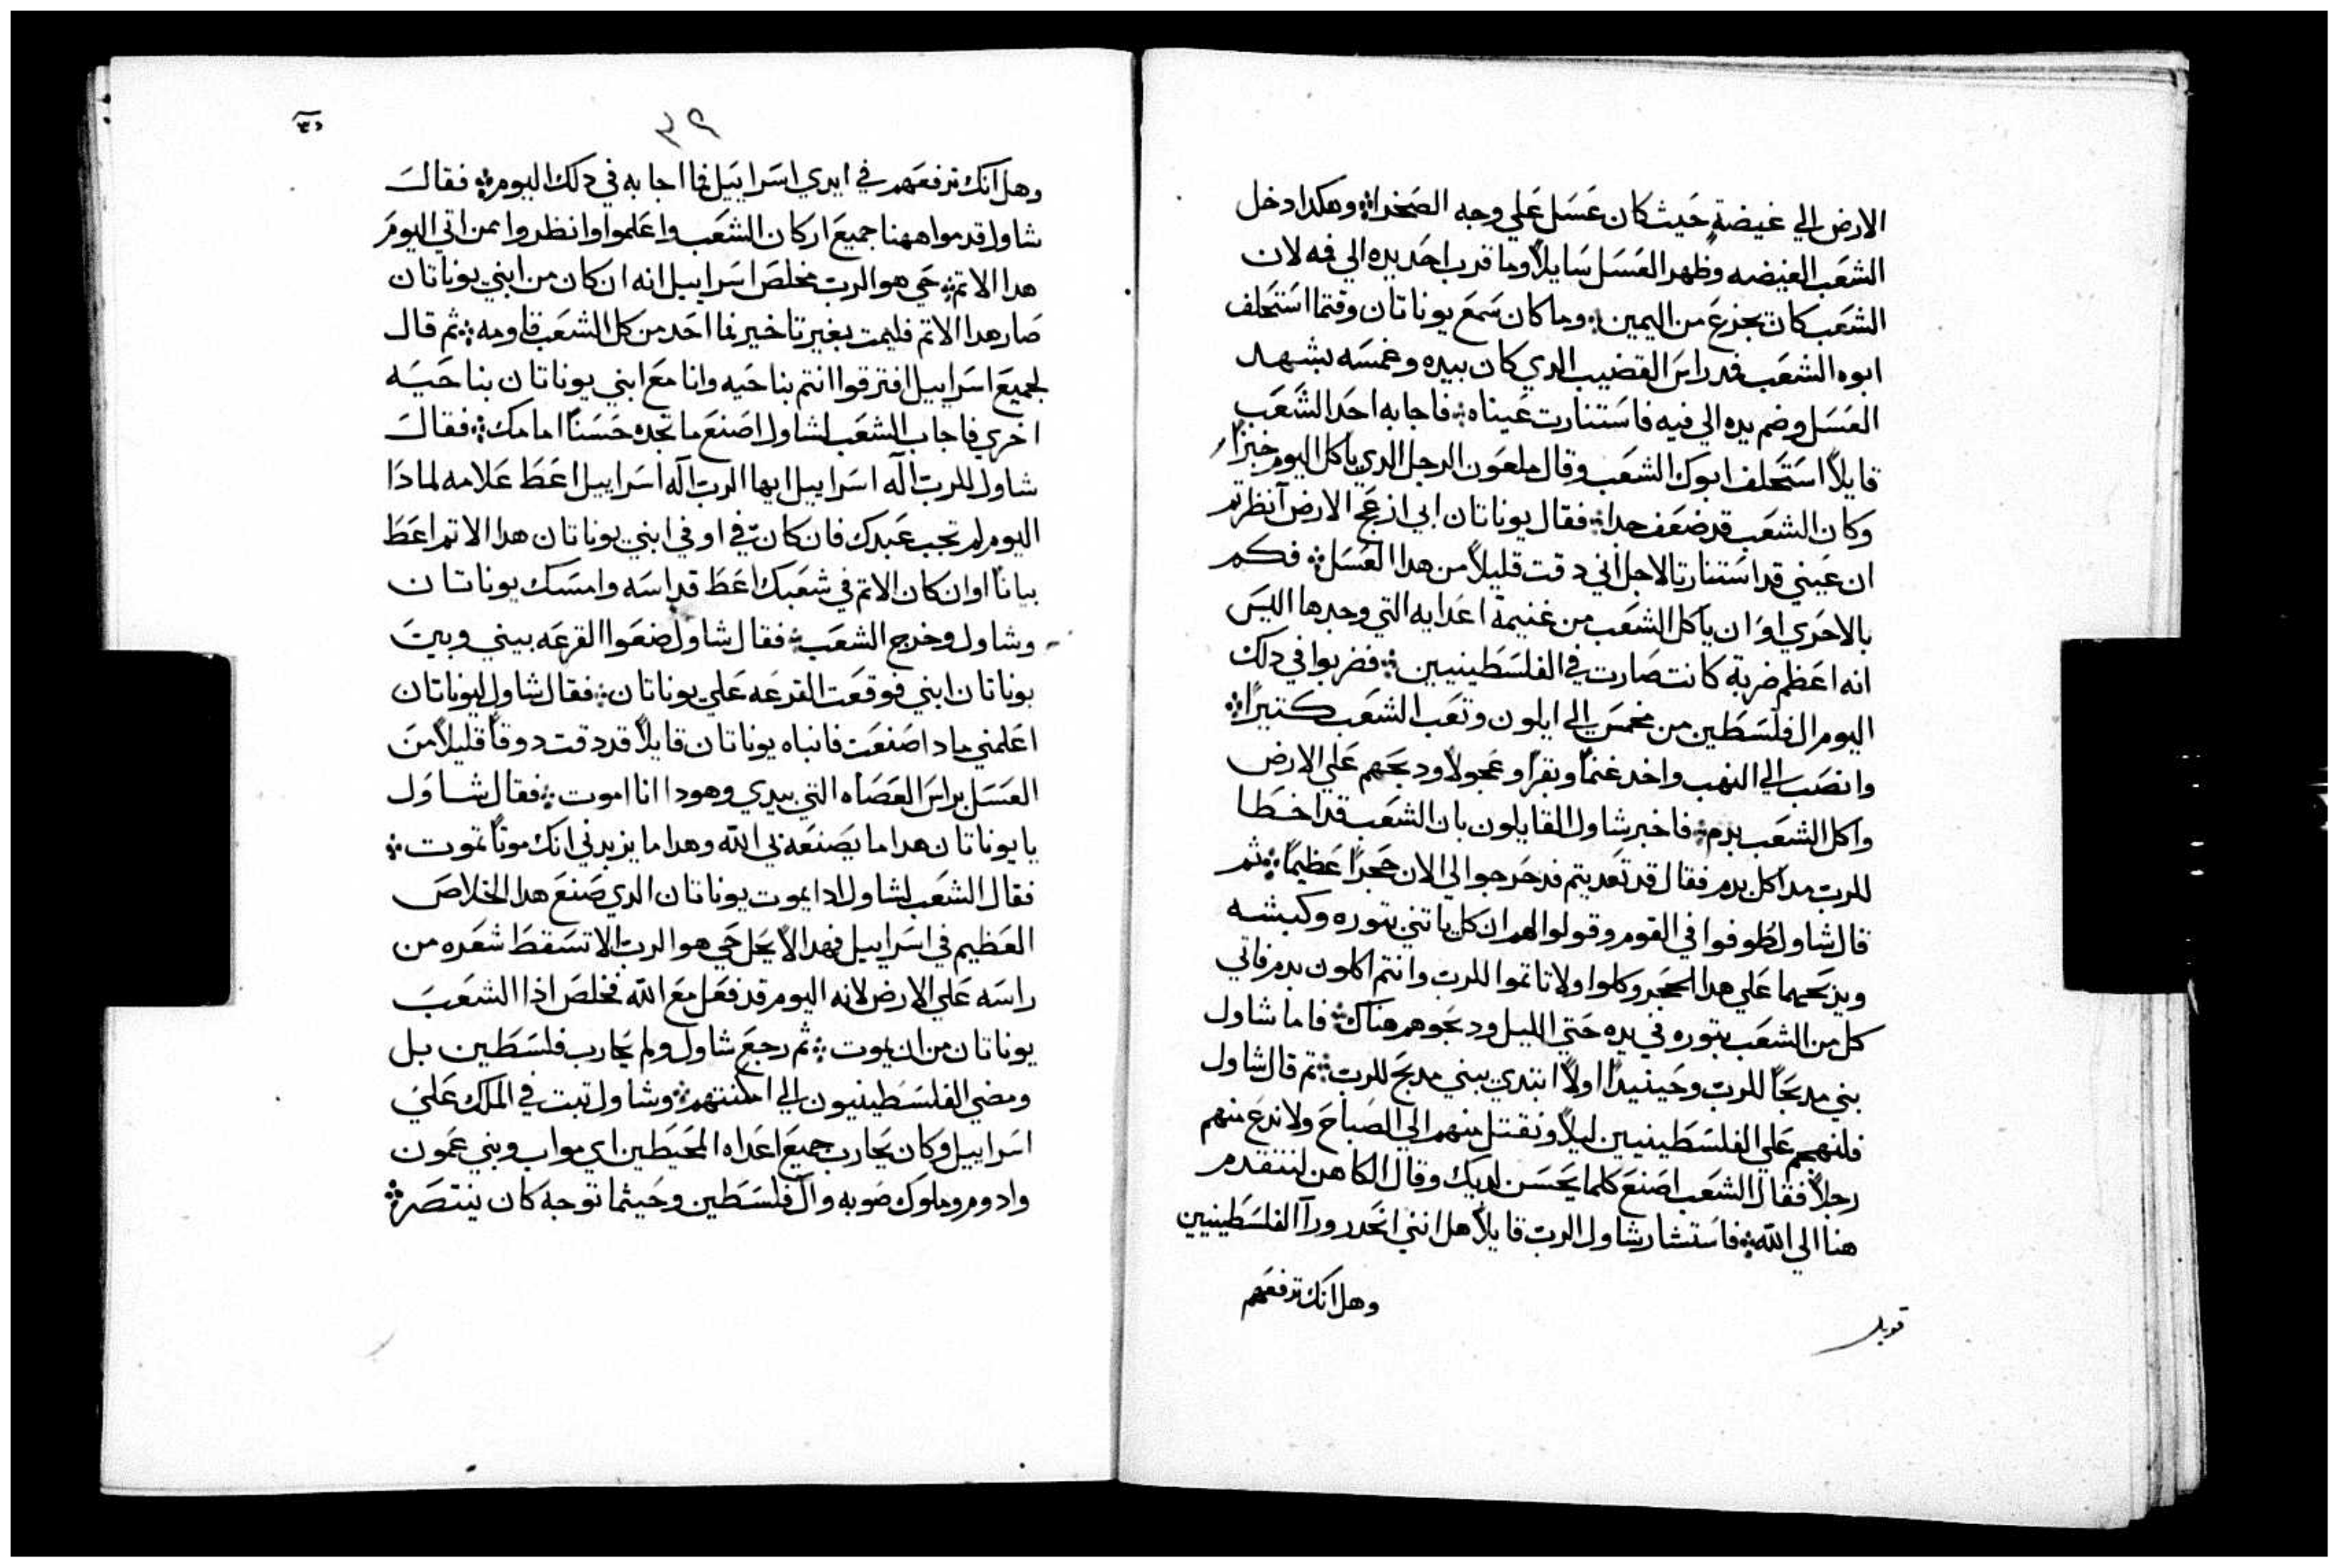 الارض الي غيضةٍ حَيث كان عَسَل عَلي وجه الصَخرا؞ وهكدا دخل
الشعَب الغيضه وظهر العَسَل سَايلاً وما قرب احَد يده الي فه لان
الشعَب كان يجزعَ من اليمين؞ وما كان سَمعَ يوناتان وقتما استَحَلف
ابوه الشعَب فمد راسَ القضيب الدي كان بيده وغمسَه بشهد
العَسَل وضم يده الي فيه فاسَتنارت عَيناه؞ فاجابه احَد الشعَب
قايلاً استَحَلف ابوك الشعَب وقال ملعَون الرجل الدي ياكل اليوم خبزاً
وكان الشعَب قد ضعَف جدا؞ فقال يوناتان ابي ازعَج الارض آنظرتم
ان عَيني قد استَنارتا لاجل أني دقت قليلاً من هدا العَسَل؞ فكم
بالاحَري اوَ ان ياكل الشعَب من غنيمة اعَدايه التي وجدها اليسَ
انه اعَظم ضربة كانت صَارت في الفلسَطينيين؞ فضربوا في دلك
اليوم ال فلسَطين من مخمسَ الي ايلون وتعَب الشعَب كتيراً؞
وانصَب الي النهب واخد غنماً وبقراً وعَجولاً ودبحَهم عَلي الارض
واكل الشعَب بدم؞ فاخبر شاول القايلون بان الشعَب قد اخطا
للرب مداكل بدم فقال قد تعَديتم فدحَرجوا الي الان حَجراً عَظيماً؞ ثم
قال شاول طوفوا في القوم وقولوا لهم ان كل ياتني بتوره وكبشه
ويدبحَهما عَلي هدا الحَجر وكلوا ولا تاتموا للرب وانتم اكلون بدم فاتي
كل من الشعَب بتوره في يده حَتي الليل ودبحَوهم هناك؞ فاما شاول
بني مدبحَاً للرب وحَينيداً اولاً ابتدي يبني مدبحَ للرب؞ تم قال شاول
فلنهجم عَلي الفلسَطينيين ليلاً ونقتل منهم الي الصَباحَ ولا ندعَ منهم
رجلاً فقال الشعَب اصَنعَ كلما يحَسَن لديك وقال الكاهن لنتقدم
هنا الي الله؞ فاسَتشار شاول الرب قايلاً هل انني انحَدر ورآ الفلسَطينيين
وهل انك ترفعَهم
قوبل
٣٩
وهل آنك ترفعَهم في ايدي اسَراييَل فما اجابه في دلك اليوم؞ فقال
شاول قدموا ههنا جميعَ اركان الشعَب واعَلموا وانظروا بمن اتي اليوم
هدا الاتم؞ حَي هو الرب مخلصَ اسَراييل انه ان كان من ابني يوناتان
صَار هدا الاتم فليمت بغير تاخير فما احَد من كل الشعَب قاومه؞ ثم قال
لجميعَ اسَراييل افترقوا انتم بناحَيه وانا معَ ابني يوناتان بناحَيَه
اخري فاجاب الشعَب لشاول اصَنعَ ما تجده حَسَناً امامك؞ فقال
شاول للرب آله اسَراييل ايها الرب آله اسَراييل اعَطَ عَلامه لمادا
اليوم لم تجب عَبدك فان كان فيّ او في ابني يوناتان هدا الاتم اعَطَ
بياناً او ان كان الاتم في شعَبك اعَطَ قداسَه وامسَك يوناتان
وشاول وخرج الشعَب؞ فقال شاول ضعَوا القرعَه بيني وبين
يوناتان ابني فوقعَت القرعَه عَلي يوناتان؞ فقال شاول ليوناتان
اعَلمني مادا صَنعَت فانباه يوناتان قايلاً قد دقت دوقاً قليلاً من
العَسَل براسَ العَصَاه التي بيدي وهودا انا اموت؞ فقال شاوَل
يا يوناتان هدا ما يصَنعَه بي الله وهدا ما يزيدني انك موتاً تموت؞
فقال الشعَب لشاول ادا يموت يوناتان الدي صَنعَ هدا الخلاصَ
العَظيم في اسَراييل فهدا لا يحَل حَي هو الرب لا تسَقطَ شعَره من
راسَه عَلي الارض لانه اليوم قد فعَل معَ الله فخلصَ اذا الشعَبَ
يوناتان من ان يموت؞ ثم رجعَ شاول ولم يحَارب فلسَطين بل
ومضي الفلسَطينيون الي امكنتهم؞ وشاول تبت في الملك عَلي
اسَراييل وكان يحَارب جميعَ اعَداه المحَيَطين اي مواب وبني عَمون
وادوم وملوك صَوبه وال فلسَطين وحَيثما توجه كان ينتصَر؞